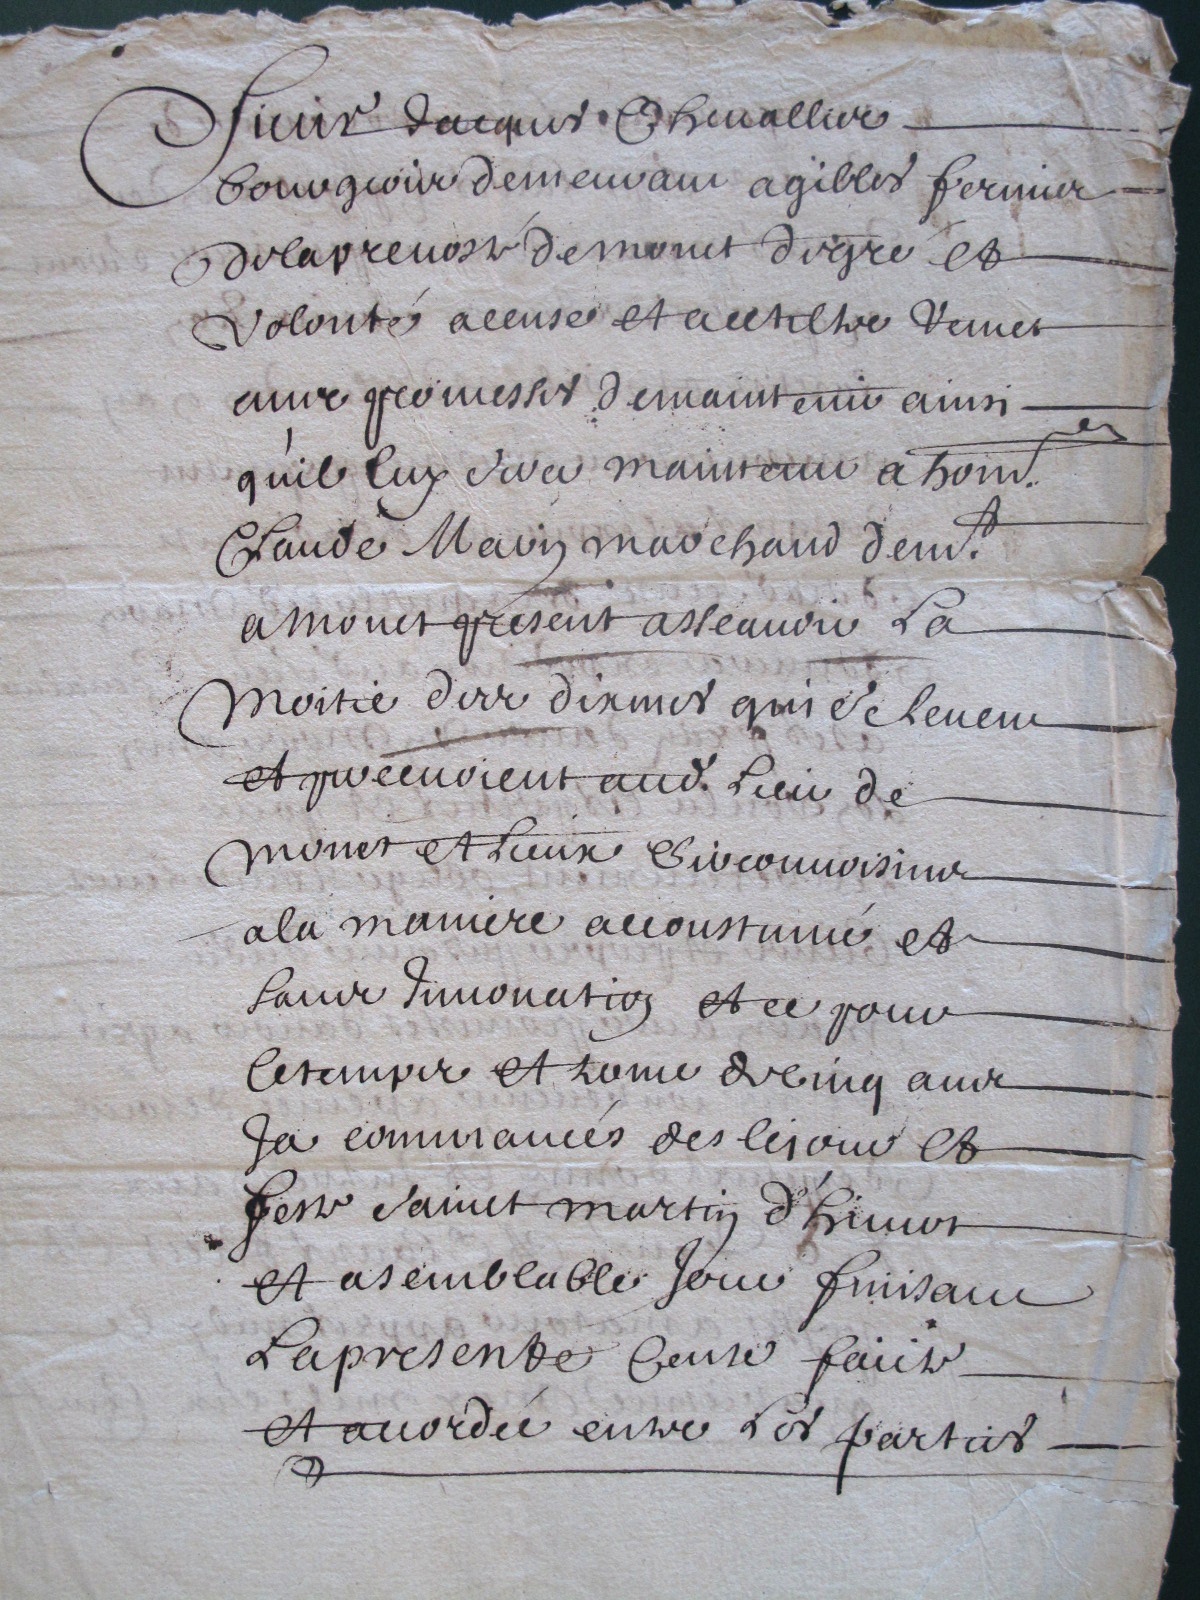 Sieur Jacques Chevallier
bourgeois demeurant a gilley fermier
de la prevosté de monet de gré et
volonté accense et a ce tiltre remet
avec promesses de maintenir ainsi
quil luy sera maintenu a hon.
Claude Mavin marchand dem.t
a monet present assavoir La
moitie des dixmes qui se levent
et percevoient aud. Lieu de
monet et Lieux Circonvoisins
a la maniere accoustumé et
sans Innovation et ce pour
le temps et terme de cinq ans
Ja commancés des le jour et
feste sainct martin d'hivers
et a semblable Jour finisant
La presente Cense faicte
et acordée entre Les parties